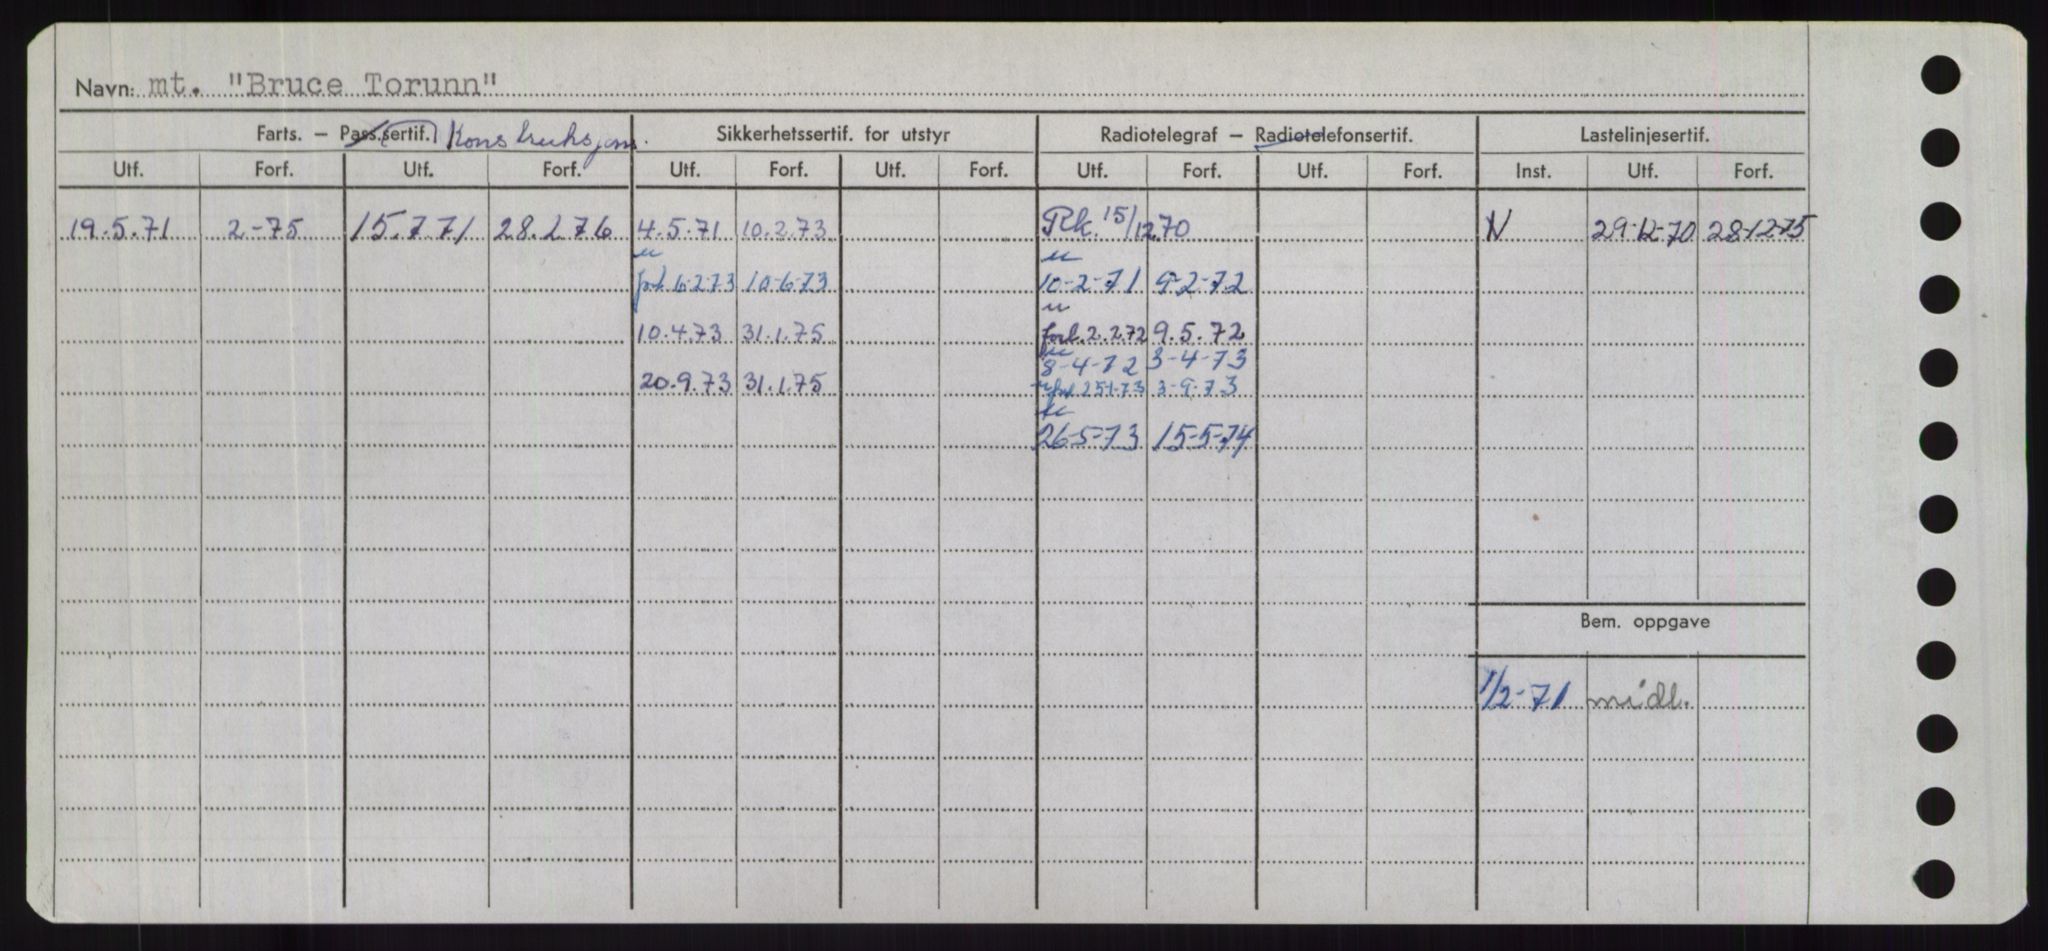 Navn: mt. "Bruce Torunn"
Farts. – Pass.sertif. Konstruksjons. Sikkerhetssertif. for utstyr Radiotelegraf – Radiotelefonsertif. Lastelinjesertif.
Utf. Forf. Utf. Forf. Utf. Forf. Utf. Forf. Utf. Forf. Utf. Forf. Inst. Utf. Forf.
19.5.71 2-75 15.7.71 28.2.76 4.5.71 10.2.73 Rk. 15/12.70 N 29-12-70 28-12-75
u u
forl. 6-2-73 10-6-73 10-2-71 9-2-72
u
10.4.73 31.1.75 forl. 2.2.72 9.5.72
u
8-4-72 3-4-73
20.9.73 31.1.75 u forl 25-1-73 3-9-73
u
26-5-73 15-5-74
Bem. oppgave
1/2-71 midl.